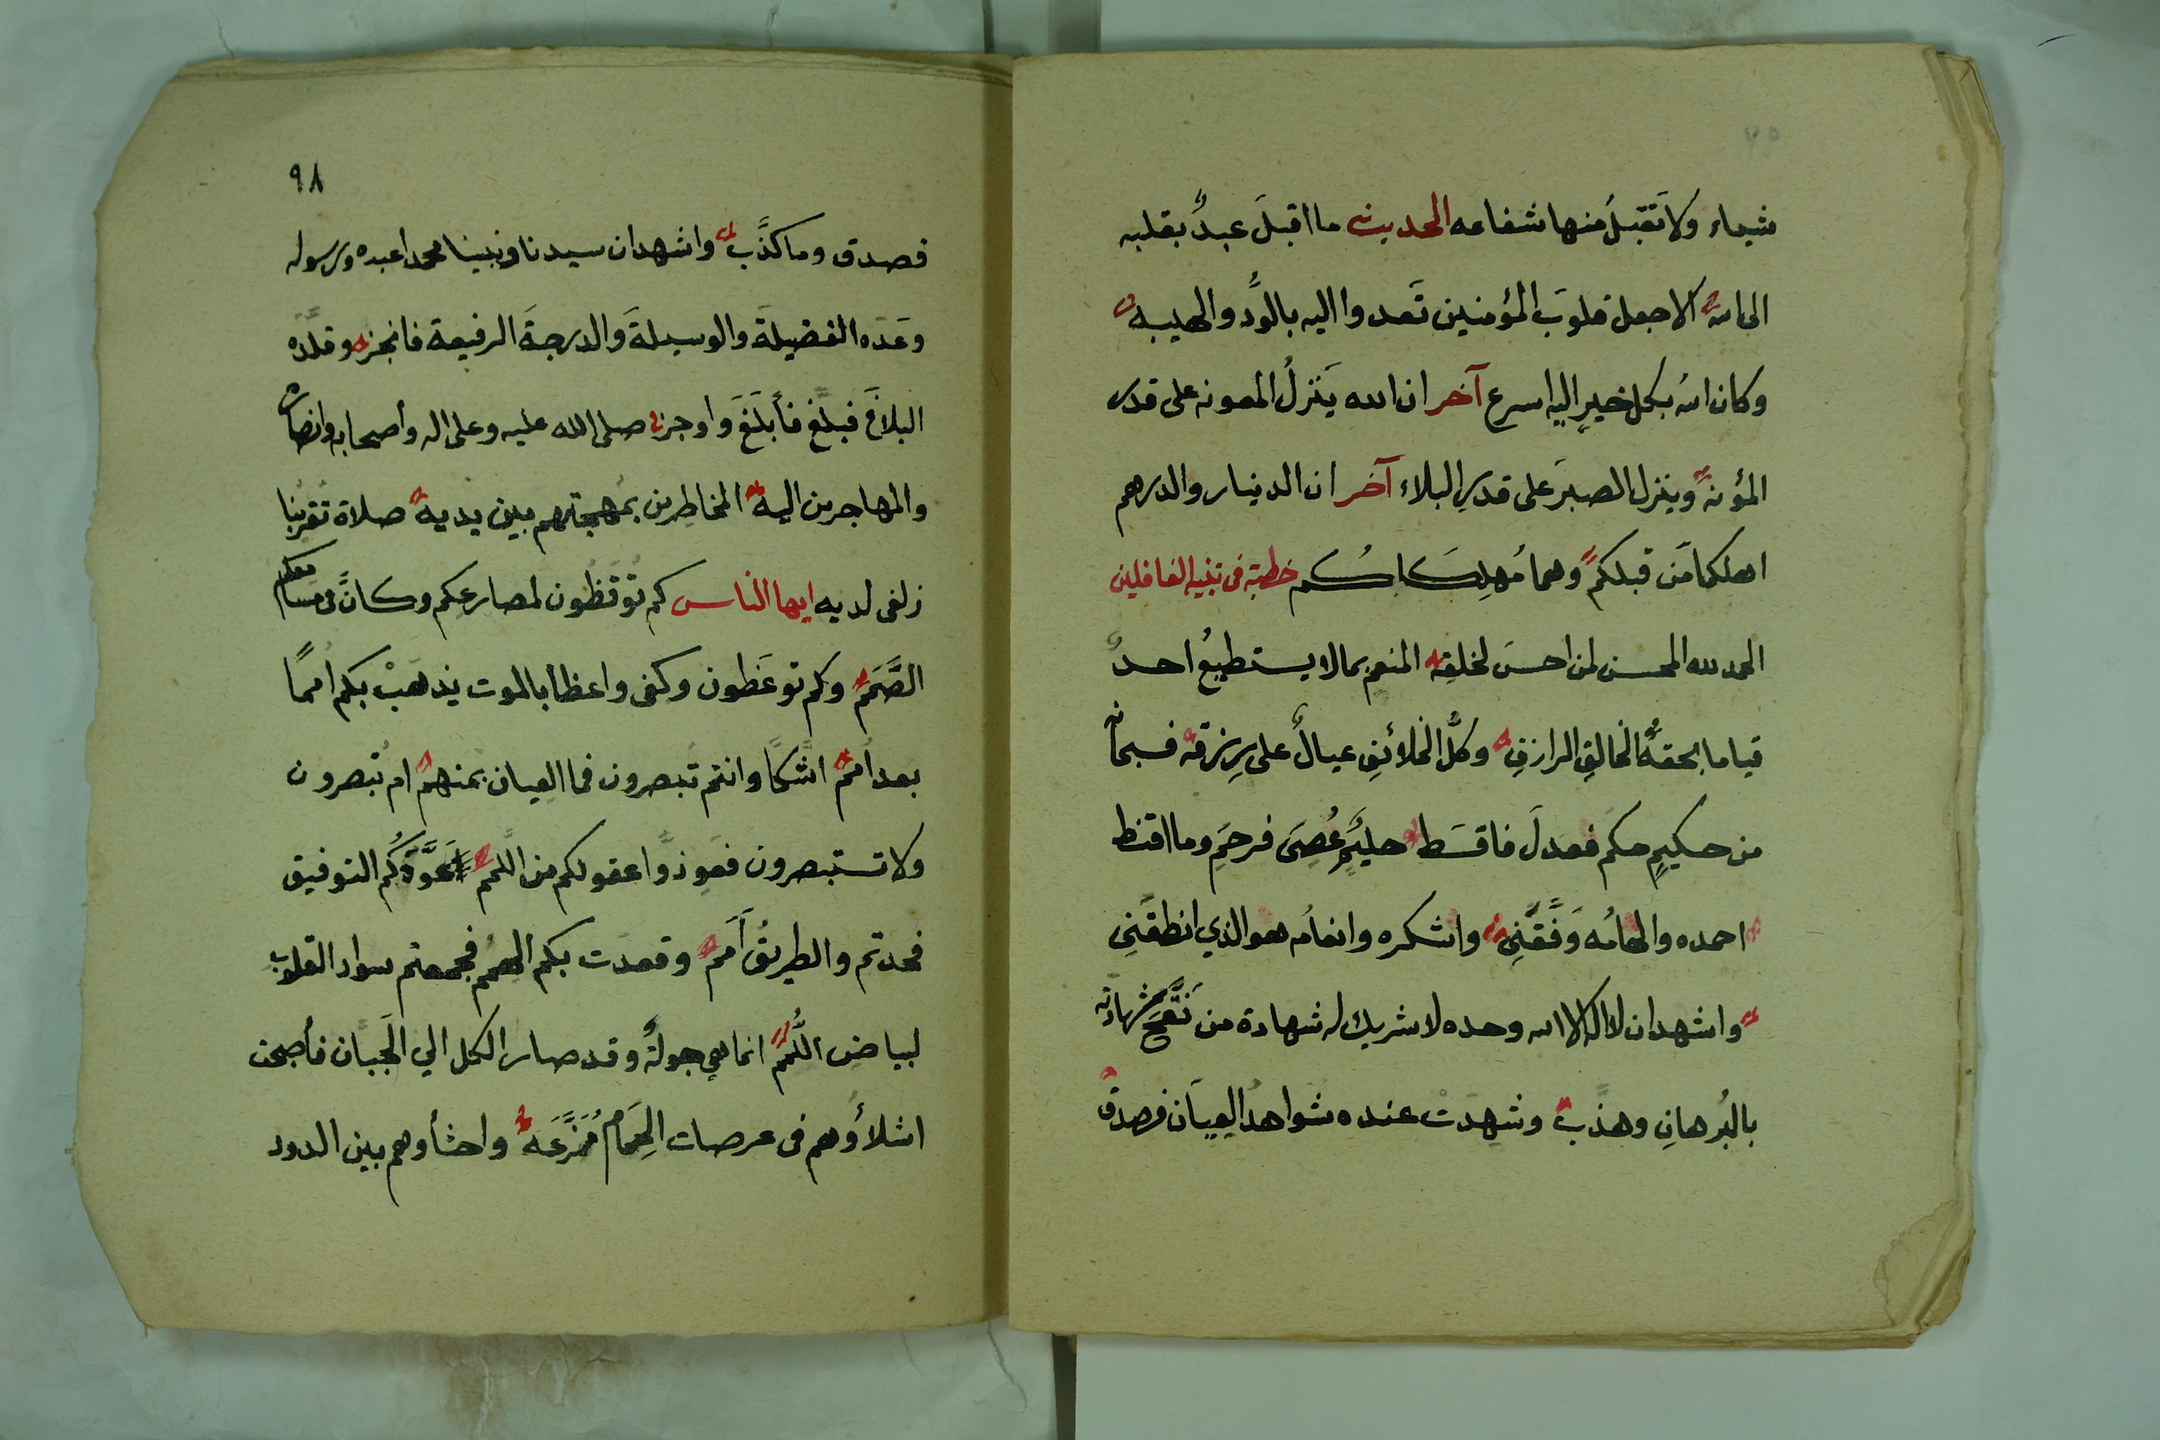 شيىاء ولا تقبلُ منها شفاعه الحديث ما اقبلَ عبدٌ بقلبه
الى الله الا جعل قلوبَ المؤمنين تَعدوا اليه بالوُدِّ والهيبه
وكان الله بكل خيرٍ اليه اسرع آخر ان الله يَنزلُ المعونه على قدر
المؤنه وينزل الصبرَ على قدرِ البلاء آخر ان الدينار والدرهم
اهلكا مَن قبلكم وهما مُهلِكَاكُم خطبة فى تنبيه الغافلين
الحمد لله المحسن لمن احسنَ لخلقِه المنعمِ بما لا يستطيعُ احدٌ
قياما بحقهِ الخالقِ الرازقِ وكلُّ الخلائقِ عيالٌ على رِزقه فسبحانه
من حكيمٍ حكم فعدلَ فاقسَط حليمٍ عُصِىَ فرحمَ وما اقنط
احمده والهامُه وَفَّقَنِى واشكره وانعامُه هو الذي انطقَنِى
واشهد ان لا اله الا الله وحده لا شريك له شهادة من نَقَّحَ شهادته
بالبُرهانِ وهذَّب وشهِدَتْ عنده شواهدُ العِيَان فصدق
٩٨
فصدق وما كذَّب واشهد ان سيدنا ونبينا محمدا عبده ورسوله
وعَدَه الفضيلةَ والوسيلةَ والدرجةَ الرفيعة فانجزه وقلَّده
البلاغَ فبلَّغ فأبلَغَ واوجز صلى الله عليه وعلى اله وأصحابه وانصاره
والمهاجرين اليه المخاطِرين بمُهجتهم بين يديه صلاة تُقرِّبُنا
زلفى لديه ايها الناس كم تُوقَظُون لمصارعكم وكانَّ فى مسامعكم
الصَّمَم وكم توعَظون وكفى واعظا بالموت يذهَبْ بكم اُمماً
بعد اُمم اشَكّا وانتم تبصرون فما العيان بمنهم ام تُبصرون
ولا تستبصرون فعوِذوا عقولكم من اللمم عَوَّدَكُم التوفيق
فحدتم والطريقُ أَمَم وقعدَت بكم الهِممُ فجمعتم سواد القلوب
لبياض اللَّمم انما هي جولةٌ وقد صار الكل الي الجَبَّان فأصبحت
اشلاؤُهم فى عرصات الحِمَام مُمَزَّعَه واحشاؤهم بين الدود